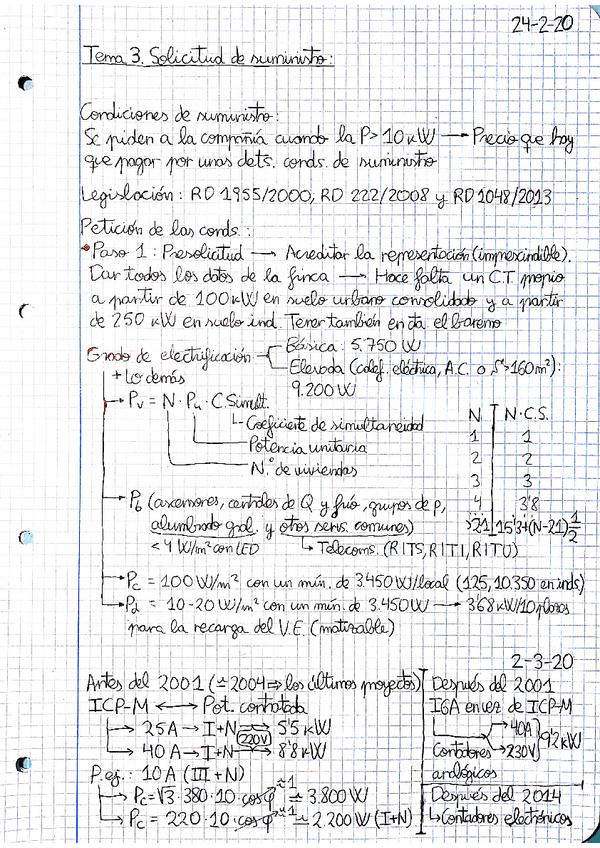 24-2-20
Tema 3. Solicitud de suministro:
Condiciones de suministro:
Se piden a la compañía cuando la P > 10 kW → Precio que hay
que pagar por unas dets. conds. de suministro
Legislación: RD 1955/2000, RD 222/2008 y RD 1048/2013
Petición de las conds.:
• Paso 1: Presolicitud → Acreditar la representación (imprescindible).
Dar todos los datos de la finca → Hace falta un C.T. propio
a partir de 100 kW en suelo urbano consolidado y a partir
de 250 kW en suelo ind. Tener también en cta el baremo
Grado de electrificación
Básica: 5.750 W
Elevada (calef. eléctrica, A.C. o S > 160 m²):
9.200 W
+ Lo demás
→ Pv = N · Pu · C.Simult.
Coeficiente de simultaneidad
Potencia unitaria
N.º de viviendas
N N·C.S.
1 1
2 2
3 3
4 3'8
>21 15'3+(N-21)½
→ Pb (ascensores, centrales de Q y frío, grupos de p,
alumbrado gral. y otros servs. comunes)
< 4 W/m² con LED
→ Telecoms. (RITS, RITI, RITU)
→ Pc = 100 W/m² con un mín. de 3.450 W/local (125, 10.350 en inds)
→ Pd = 10-20 W/m² con un mín. de 3.450 W → 3'68 kW/10 plazas
para la recarga del V.E. (matizable)
2-3-20
Antes del 2001 (≃ 2004 ⇒ los últimos proyectos)
ICP-M ↔ Pot. contratada
→ 25 A → I+N ⇒ 5'5 kW
(220V)
→ 40 A → I+N ⇒ 8'8 kW
P.ej.: 10 A (III + N)
→ Pc = √3 · 380 · 10 · cos φ ≃1 ≃ 3.800 W
→ Pc = 220 · 10 · cos φ ≃1 ≃ 2.200 W (I+N)
Después del 2001
IGA en vez de ICP-M
→ 40A
→ 230V } 9'2 kW
Contadores
analógicos
Después del 2014
↳ Contadores electrónicos